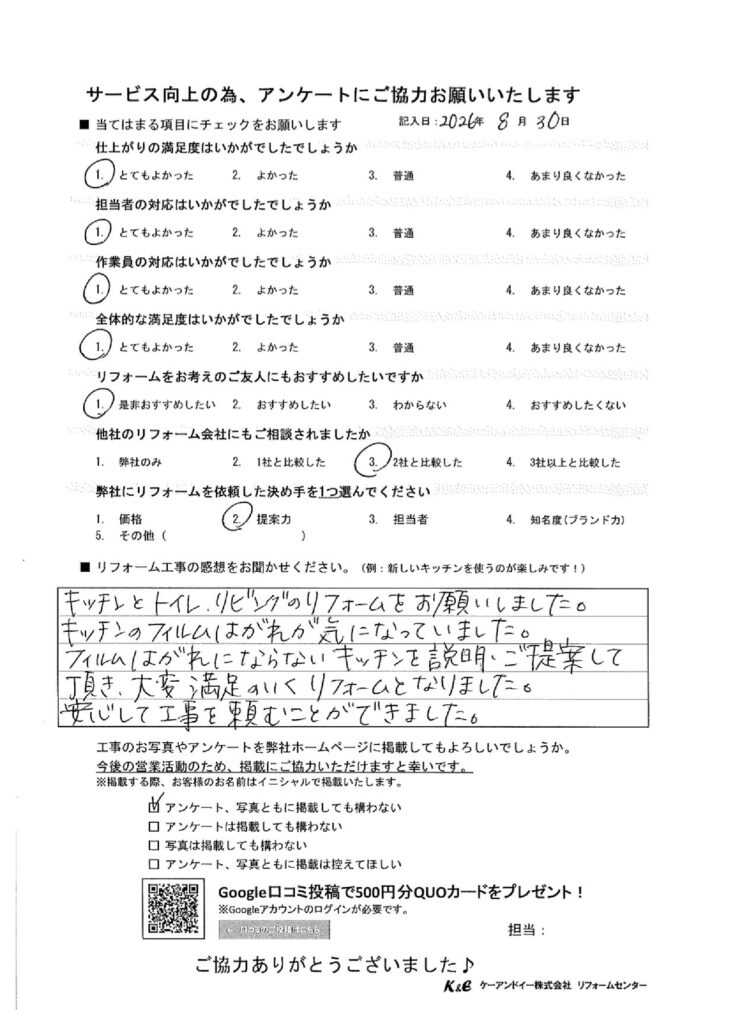 サービス向上の為、アンケートにご協力お願いいたします
■ 当てはまる項目にチェックをお願いします 記入日:2026年 8月 30日
仕上がりの満足度はいかがでしたでしょうか
1. とてもよかった 2. よかった 3. 普通 4. あまり良くなかった
担当者の対応はいかがでしたでしょうか
1. とてもよかった 2. よかった 3. 普通 4. あまり良くなかった
作業員の対応はいかがでしたでしょうか
1. とてもよかった 2. よかった 3. 普通 4. あまり良くなかった
全体的な満足度はいかがでしたでしょうか
1. とてもよかった 2. よかった 3. 普通 4. あまり良くなかった
リフォームをお考えのご友人にもおすすめしたいですか
1. 是非おすすめしたい 2. おすすめしたい 3. わからない 4. おすすめしたくない
他社のリフォーム会社にもご相談されましたか
1. 弊社のみ 2. 1社と比較した 3. 2社と比較した 4. 3社以上と比較した
弊社にリフォームを依頼した決め手を1つ選んでください
1. 価格 2. 提案力 3. 担当者 4. 知名度(ブランド力)
5. その他( )
■ リフォーム工事の感想をお聞かせください。(例:新しいキッチンを使うのが楽しみです!)
キッチンとトイレ、リビングのリフォームをお願いしました。
キッチンのフィルムはがれが気になっていました。
フィルムはがれにならないキッチンを説明・ご提案して
頂き、大変満足のいくリフォームとなりました。
安心して工事を頼むことができました。
工事のお写真やアンケートを弊社ホームページに掲載してもよろしいでしょうか。
今後の営業活動のため、掲載にご協力いただけますと幸いです。
※掲載する際、お客様のお名前はイニシャルで掲載いたします。
☑ アンケート、写真ともに掲載しても構わない
□ アンケートは掲載しても構わない
□ 写真は掲載しても構わない
□ アンケート、写真ともに掲載は控えてほしい
Google口コミ投稿で500円分QUOカードをプレゼント!
※Googleアカウントのログインが必要です。
口コミのご投稿はこちら
担当:
ご協力ありがとうございました♪
K&E ケーアンドイー株式会社 リフォームセンター